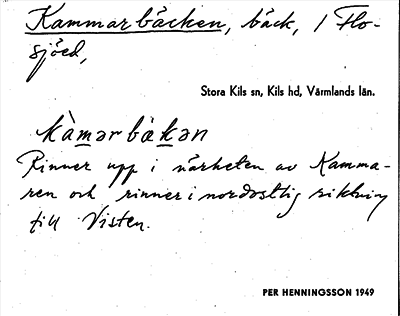 Kammarbäcken, bäck, / Flo-
sjöed,
Stora Kils sn, Kils hd, Värmlands län.
kàmər bäkən
Rinner upp i närheten av Kamma-
ren och rinner i nordostlig riktning
till Visten.
PER HENNINGSSON 1949